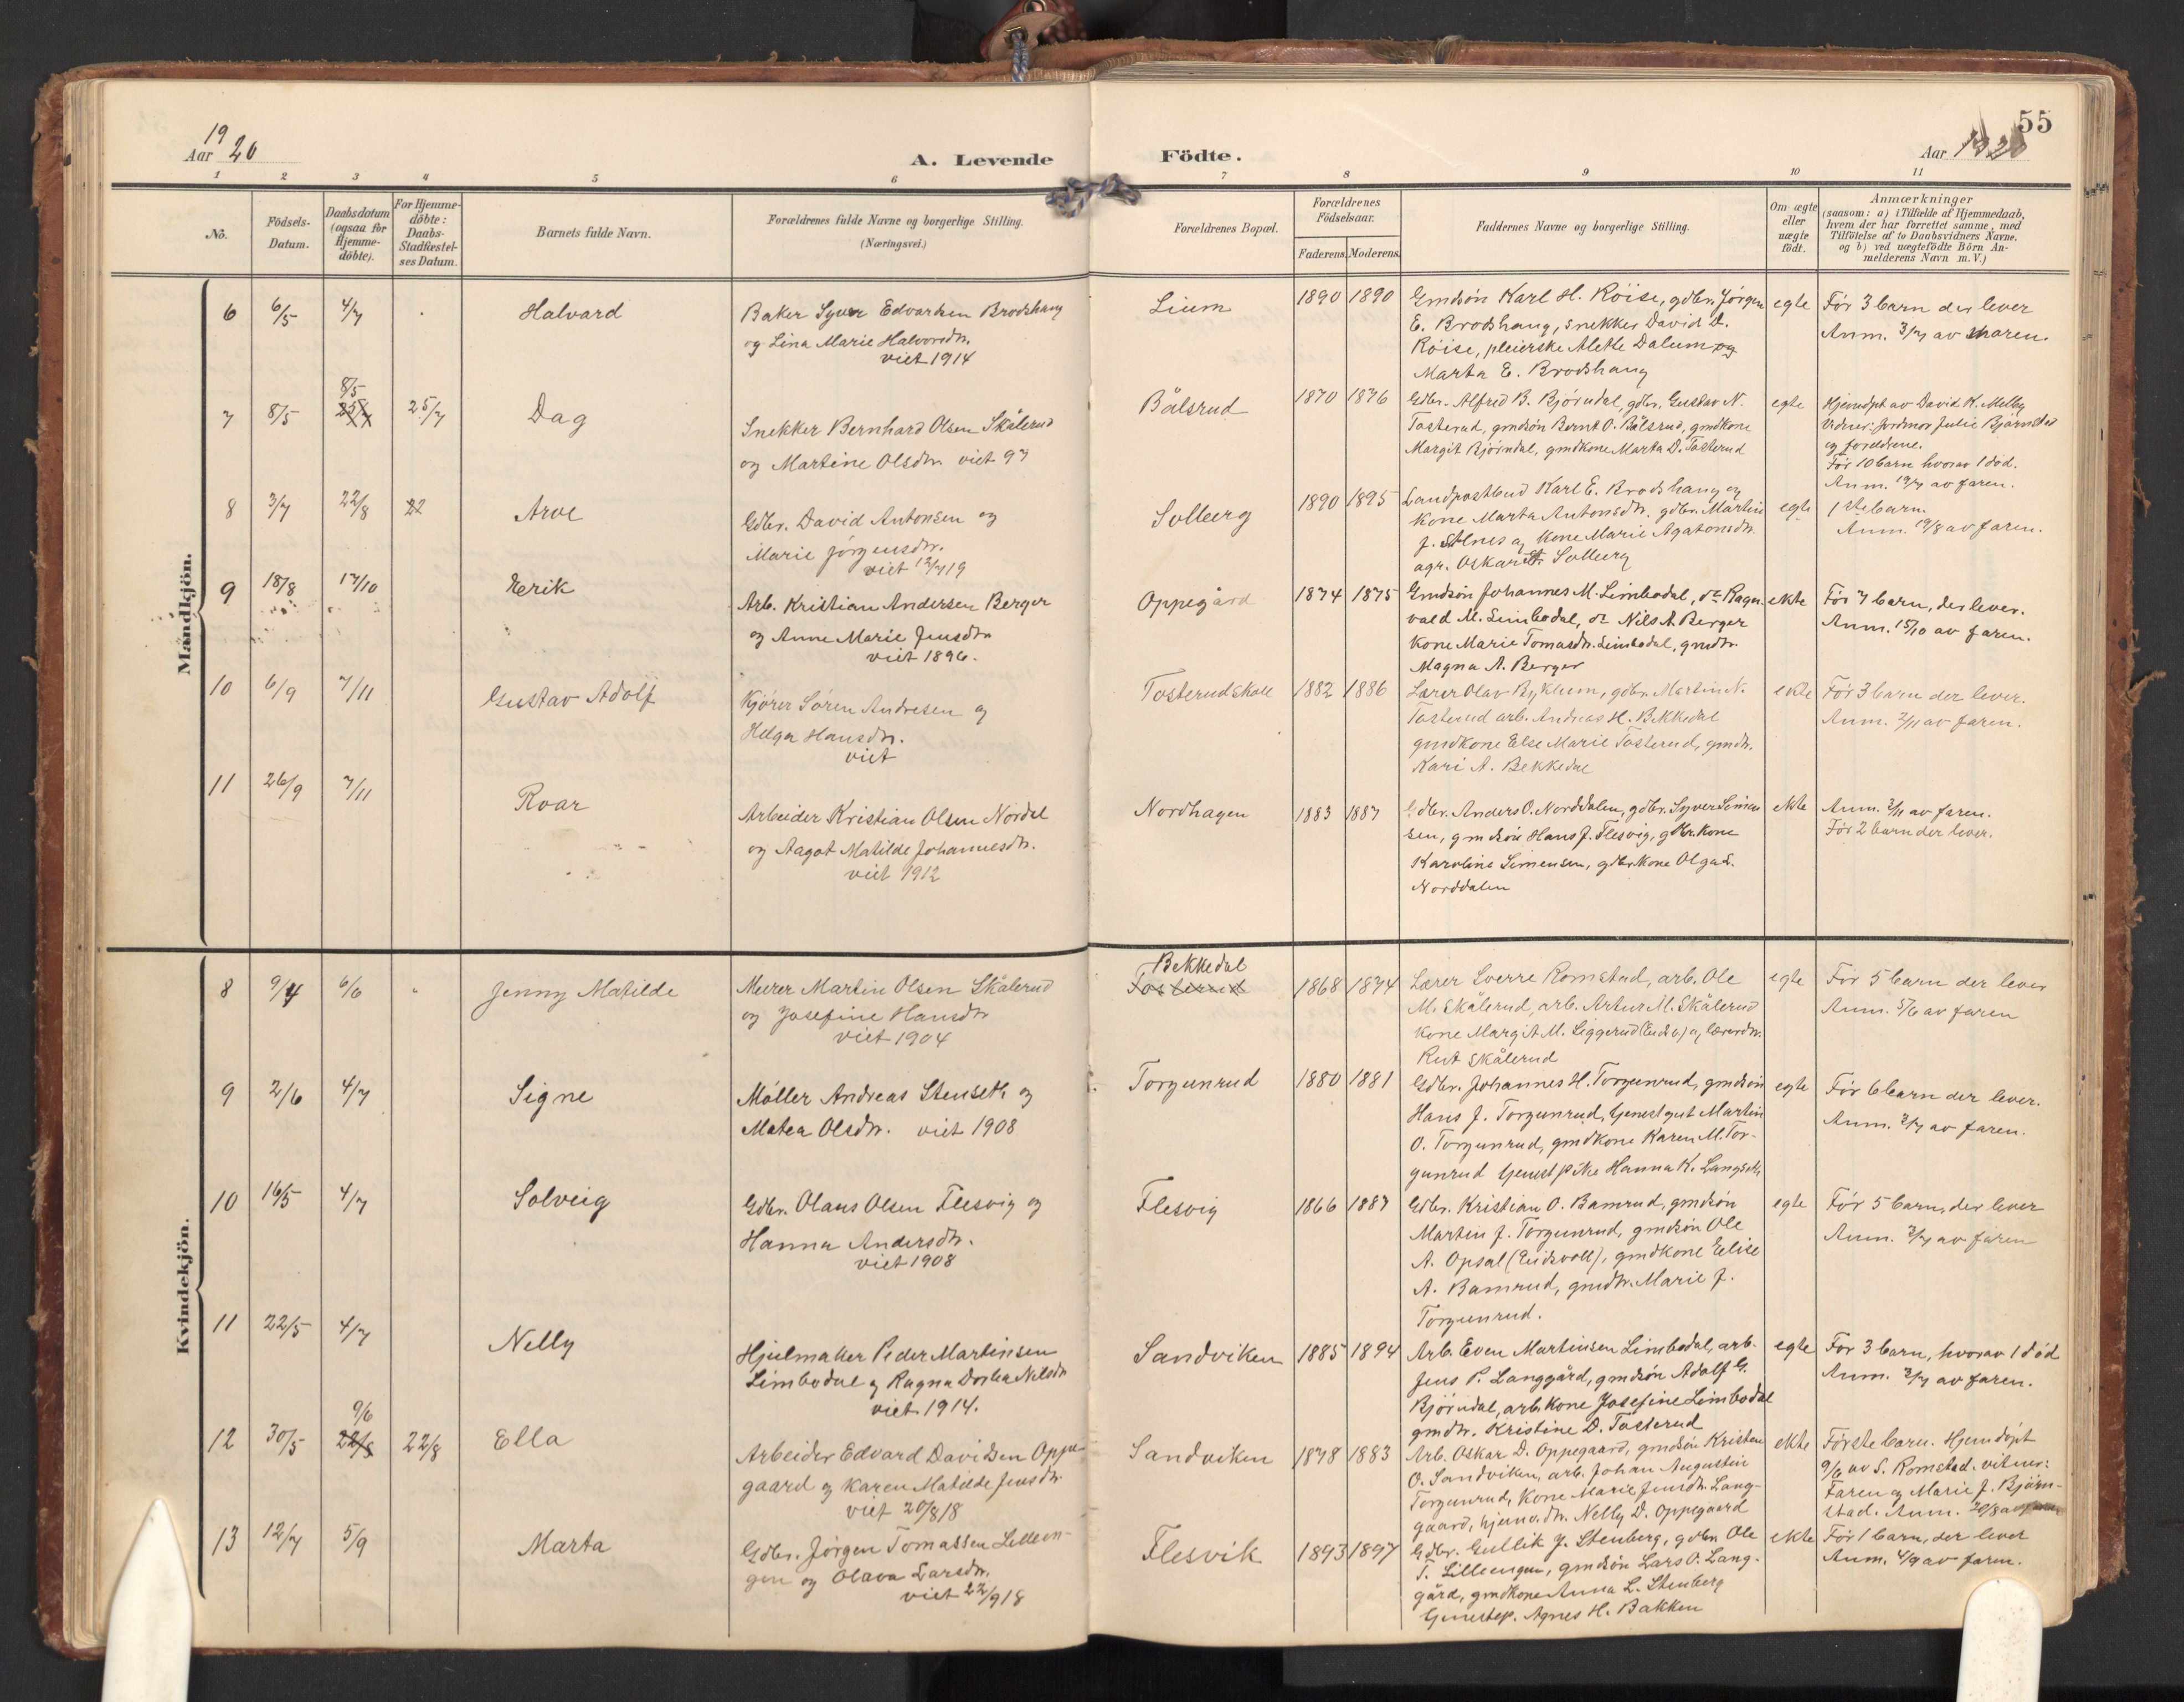 55
1920
Aar
A. Levende Födte.
Aar 1920
1 2 3 4 5 6 7 8 9 10 11
Nö.
Födsels-Datum.
Daabsdatum (ogsaa for Hjemme-döbte).
For Hjemme-döbte: Daabs-Stadfæstel-ses Datum.
Barnets fulde Navn.
Forældrenes fulde Navne og borgerlige Stilling.
(Næringsvei.)
Forældrenes Bopæl.
Forældrenes Födselsaar.
Faderens. Moderens.
Faddernes Navne og borgerlige Stilling.
Om ægte eller uægte födt.
Anmærkninger
(saasom: a) i Tilfælde af Hjemmedaab,
hvem der har forrettet samme, med
Tilföielse af to Daabsvidners Navne,
og b) ved uægtefödte Börn An-
melderens Navn m. V.)
Mandkjön.
6 6/5 4/7 Halvard
Baker Syver Edvardsen Brodshaug
og Lina Marie Halvorsdtr.
viet 1914
Lium 1890 1890
Gmdsön Karl H. Röise, gdbr. Jörgen
E. Brodshaug, snekker David A.
Röise, pleierske Alette Dalum og
Marta E. Brodshaug
egte
Før 3 barn der lever
Anm. 3/7 av
7 8/5 8/5 25/7 25/7 Dag
Snekker Bernhard Olsen Skålerud
og Martine Olsdtr. viet 97
Bålsrud 1870 1876
Gdbr. Alfred B. Bjørndal, gdbr. Gustav N.
Tosterud, gmdsön Bernt O. Bålsrud, gmdkone
Margit Bjørndal, gmdkone Marta D. Tosterud
egte
Hjemdøpt av David K. Melby
Vidner: Jordmor Julie Bjørnstad
og foreldrene.
Før 10 barn hvorav 1 død.
Anm. 19/7 av faren.
8 3/7 22/8 22 Arve
Gdbr. David Antonsen og
Marie Jørgensdtr.
viet 12/7 19
Solberg 1890 1895
Landpostbud Karl E. Brodshaug og
kone Marta Antonsdtr. gdbr. Martin
J. Stenes og kone Marie Agatonsdtr.
agr. Oskar A. Solberg
egte
1ste barn.
Anm. 19/8 av faren.
9 18/8 17/10 Erik
Arb. Kristian Andersen Berger
og Anne Marie Jensdtr
viet 1896.
Oppegård 1874 1875
Gmdsön Johannes M. Limbodal, do Ragn-
vald M. Limbodal, do Nils A. Berger
kone Marie Tomasdtr. Limbodal, gmdtr.
Magna A. Berger
ekte
Før 7 barn, der lever.
Anm. 15/10 av faren.
10 6/9 7/11 Gustav Adolf
Kjører Søren Andresen og
Helga Hansdtr.
viet
Tosterud skole 1882 1886
Lærer Olav Ryklum, gdbr. Martin N.
Tosterud arb. Andreas H. Bekkedal
gmdkone Else Marie Tosterud, gmdtr.
Kari A. Bekkedal
ekte
Før 3 barn der lever.
Anm. 2/11 av faren.
11 26/9 7/11 Roar
Arbeider Kristian Olsen Nordal
og Aagot Matilde Johannesdtr.
viet 1912
Nordhagen 1883 1887
Gdbr. Anders O. Norddalen, gdbr. Syver Simen-
sen, gmdsön Hans J. Flesvig, gdbr. kone
Karoline Simensen, gdbr. kone Olga S.
Norddalen
ekte
Anm. 2/11 av faren.
Før 2 barn der lever.
Kvindekjön.
8 9/4 6/6 Jenny Matilde
Murer Martin Olsen Skålerud
og Josefine Hansdtr
viet 1904
Bekkedal
Tosterud
1868 1874
Lærer Sverre Romstad, arb. Ole
M. Skålerud, arb. Artur M. Skålerud
kone Margit M. Liggerud
Rut Skålerud
egte
Før 5 barn der lever
Anm. 5/6 av faren
9 2/6 4/7 Signe
Møller Andreas Stenseth og
Matea Olsdtr. viet 1908
Torgunrud 1880 1881
Gdbr. Johannes H. Torgunrud, gmdsön
Hans J. Torgunrud, tjenestgut Martin
O. Torgunrud, gmdkone Karen M. Tor-
gunrud tjenestpike Hanna K. Langseth
egte
Før 6 barn der lever.
Anm. 2/7 av faren.
10 16/5 4/7 Solveig
Gdbr. Olaus Olsen Flesvig og
Hanna Andersdtr.
viet 1908
Flesvig 1866 1887
Gdbr. Kristian O. Bamrud, gmdsön
Martin J. Torgunrud, gmdsön Ole
A. Opsal (Eidsvoll), gmdkone Eelise
A. Bamrud, gmdtr. Marie J.
Torgunrud.
egte
Før 5 barn, der lever
Anm. 3/7 av faren
11 22/5 4/7 Nelly
Hjulmaker Peder Martinsen
Limbodal og Ragna Dorthea Nilsdtr
viet 1914.
Sandviken 1885 1894
Arb. Even Martinsen Limbodal, arb.
Jens P. Langgård, gmdsön Adolf G.
Bjørndal, arb. kone Josefine Limbodal
gmdtr. Kristine D. Tosterud
egte
Før 3 barn, hvorav 1 død
Anm. 2/7 av faren.
12 30/5 9/6 22/8 22/8 Ella
Arbeider Edvard Davidsen Oppe-
gaard og Karen Matilde Jensdtr.
viet 20/8 18
Sandviken 1878 1883
Arb. Oskar D. Oppegaard, gmdsön Kristen
O. Sandviken, arb. Johan Augustin
Torgunrud, kone Marie Jensdtr. Lang-
gaard, hjemv. dtr. Nelly D. Oppegaard
ekte
Første barn. Hjemdøpt
9/6 av S. Romstad. vitner:
Faren og Marie J. Bjørn-
stad. Anm. 20/8 av faren
13 12/7 5/9 Marta
Gdbr. Jørgen Tomassen Lilleen-
gen og Olava Larsdtr.
viet 22/9 18
Flesvik 1893 1897
Gdbr. Gullik J. Stenberg, gdbr. Ole
T. Lilleengen, gmdsön Lars O. Lang-
gård, gmdkone Anna L. Stenberg
Agnes H. Bakken
ekte
Før 1 barn, der lever
Anm. 4/9 av faren.